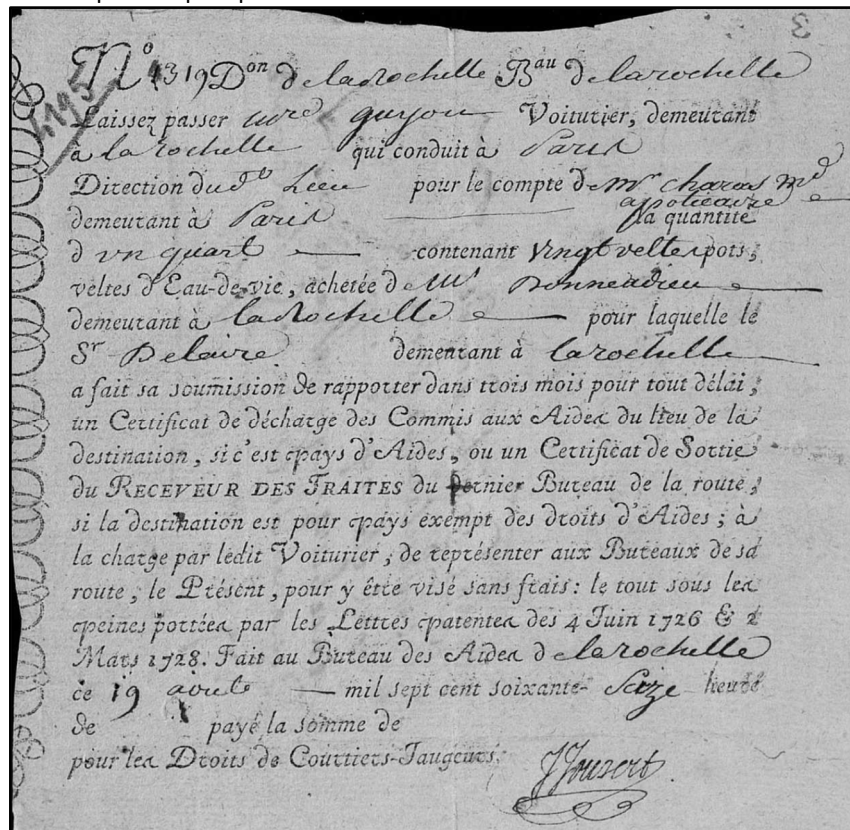 3
4195
N.º 4319 D.on de la Rochelle B.au de larochelle
Laissez passer guyon Voiturier, demeurant
à la rochelle qui conduit à Paris
Direction du d.o Lieu pour le compte de mr charas md
apoticaire
demeurant à Paris la quantité
d vn quart contenant vingt veltes pots,
veltes d'Eau-de-vie, achetée de Mr Bonneadieu
demeurant à la Rochelle pour laquelle le
Sr Delaire demeurant à larochelle
a fait sa soumission de rapporter dans trois mois pour tout délai,
un Certificat de décharge des Commis aux Aides du lieu de la
destination, si c'est pays d'Aides, ou un Certificat de Sortie
du RECEVEUR DES TRAITES du dernier Bureau de la route,
si la destination est pour pays exempt des droits d'Aides ; à
la charge par ledit Voiturier, de représenter aux Bureaux de sa
route, le Présent, pour y être visé sans frais : le tout sous les
peines portées par les Lettres patentes des 4 Juin 1726 & 2
Mars 1728. Fait au Bureau des Aides de larochelle
ce 19 aoust mil sept cent soixante- Seize heure
de payé la somme de
pour les Droits de Courtiers-Jaugeurs.